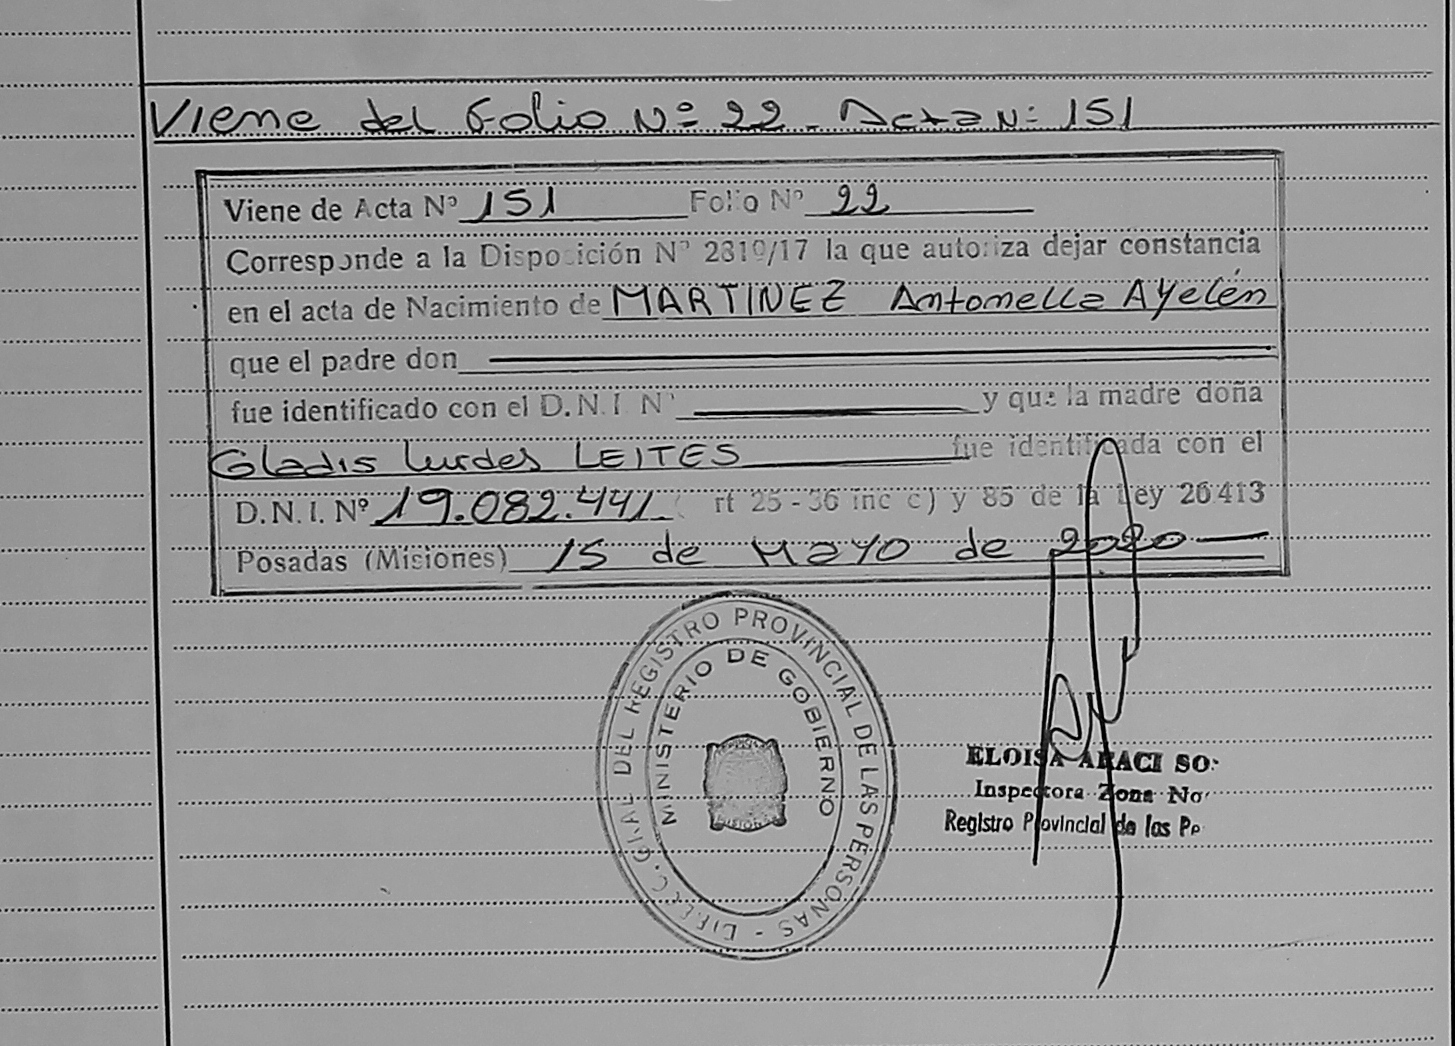 Viene del Folio Nº 22 - Acta Nº 151
Viene de Acta Nº 151 Folio Nº 22
Corresponde a la Disposición Nº 2819/17 la que autoriza dejar constancia
en el acta de Nacimiento de MARTINEZ Antonella Ayelén
que el padre don
fue identificado con el D.N.I Nº y que la madre doña
Gladis Lurdes LEITES fue identificada con el
D.N.I. Nº 19.082.441 ( rt 25 - 36 inc c) y 85 de la Ley 26413
Posadas (Misiones) 15 de Mayo de 2020
DIREC. GRAL DEL REGISTRO PROVINCIAL DE LAS PERSONAS -
MINISTERIO DE GOBIERNO
MISIONES
ELOISA ARACI SO
Inspectora Zona No
Registro Provincial de las Pe